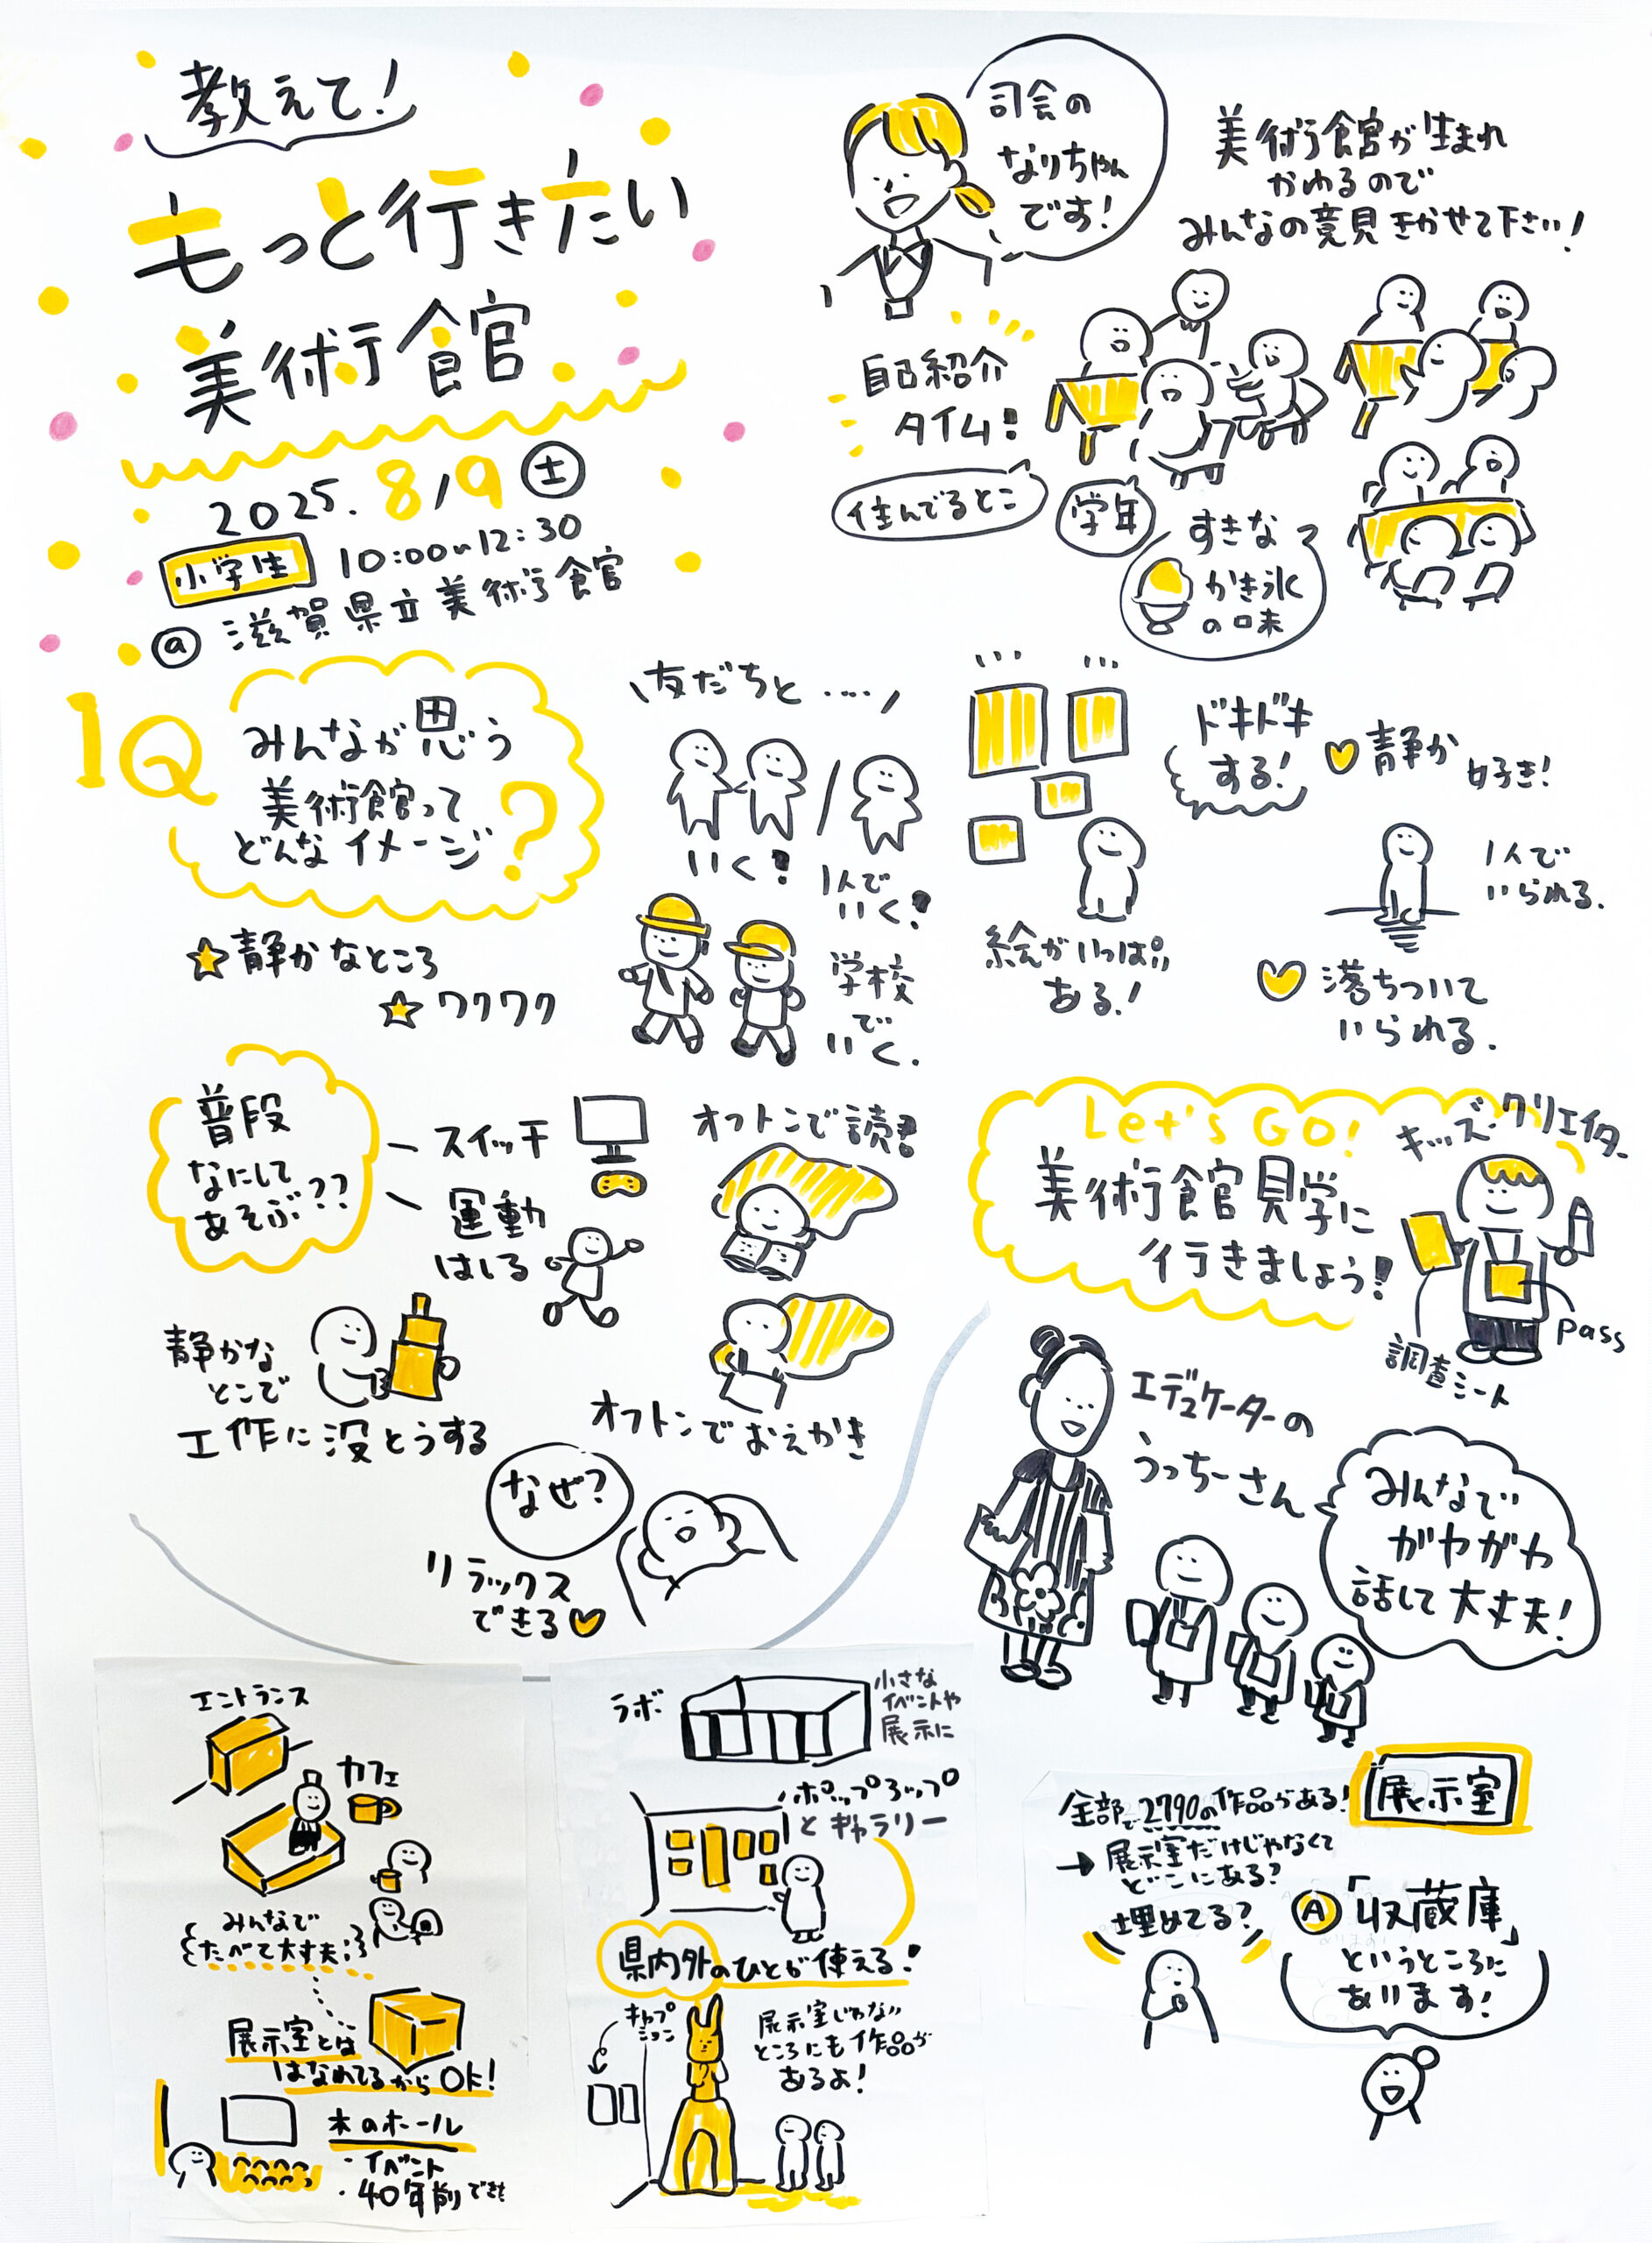 教えて!
もっと行きたい
美術館
2025. 8/9 土
小学生 10:00~12:30
@ 滋賀県立美術館
司会の
なりちゃん
です!
美術館が生まれ
かわるので
みんなの意見きかせて下さい!
自己紹介
タイム!
住んでるとこ
学年
すきな
かき氷
の味
1Q
みんなが思う
美術館って
どんなイメージ?
☆静かなところ
☆ワクワク
友だちと....
いく!
1人で
いく!
学校
で
いく.
ドキドキ
する!
絵がいっぱい
ある!
静か
好き!
1人で
いられる.
落ちついて
いられる.
普段
なにして
あそぶ??
スイッチ
運動
はしる
オフトンで読書
静かな
とこで
工作に没とうする
オフトンでおえかき
なぜ?
リラックス
できる
Let's GO!
美術館見学に
行きましょう!
キッズ・クリエイター
pass
調査シート
エデュケーターの
うっちーさん
みんなで
ガヤガヤ
話して大丈夫!
エントランス
カフェ
みんなで
たべて大丈夫
展示室とは
はなれてるからOK!
木のホール
・イベント
・40年前できた
ラボ
小さな
イベントや
展示に
ポップアップ
と ギャラリー
県内外のひとが使える!
キャプ
ション
展示室じゃない
ところにも作品が
あるよ!
展示室
全部で2790の作品がある!
→ 展示室だけじゃなくて
どこにある?
埋めてる?
A 「収蔵庫」
というところに
あります!